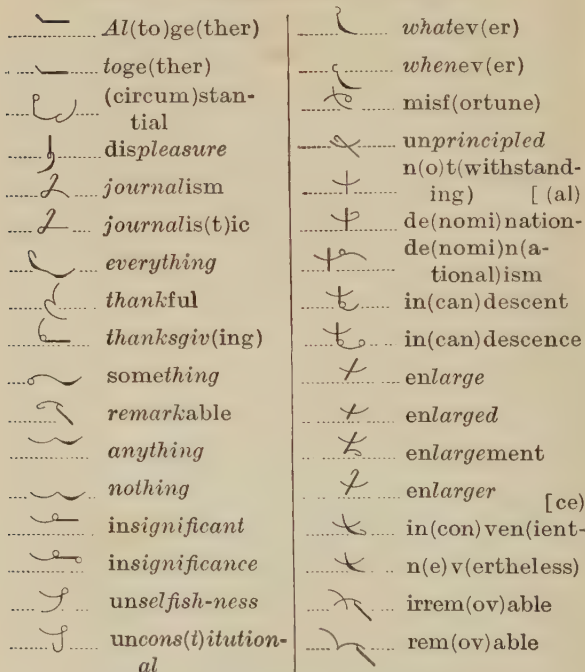 Al(to)ge(ther)
toge(ther)
(circum)stan-
tial
displeasure
journalism
journalis(t)ic
everything
thankful
thanksgiv(ing)
something
remarkable
anything
nothing
insignificant
insignificance
unselfish-ness
uncons(t)itution-
al
whatev(er)
whenev(er)
misf(ortune)
unprincipled
n(o)t(withstand-
ing) [ (al)
de(nomi)nation-
de(nomi)n(a-
tional)ism
in(can)descent
in(can)descence
enlarge
enlarged
enlargement
enlarger
[ce)
in(con)ven(ient-
n(e)v(ertheless)
irrem(ov)able
rem(ov)able